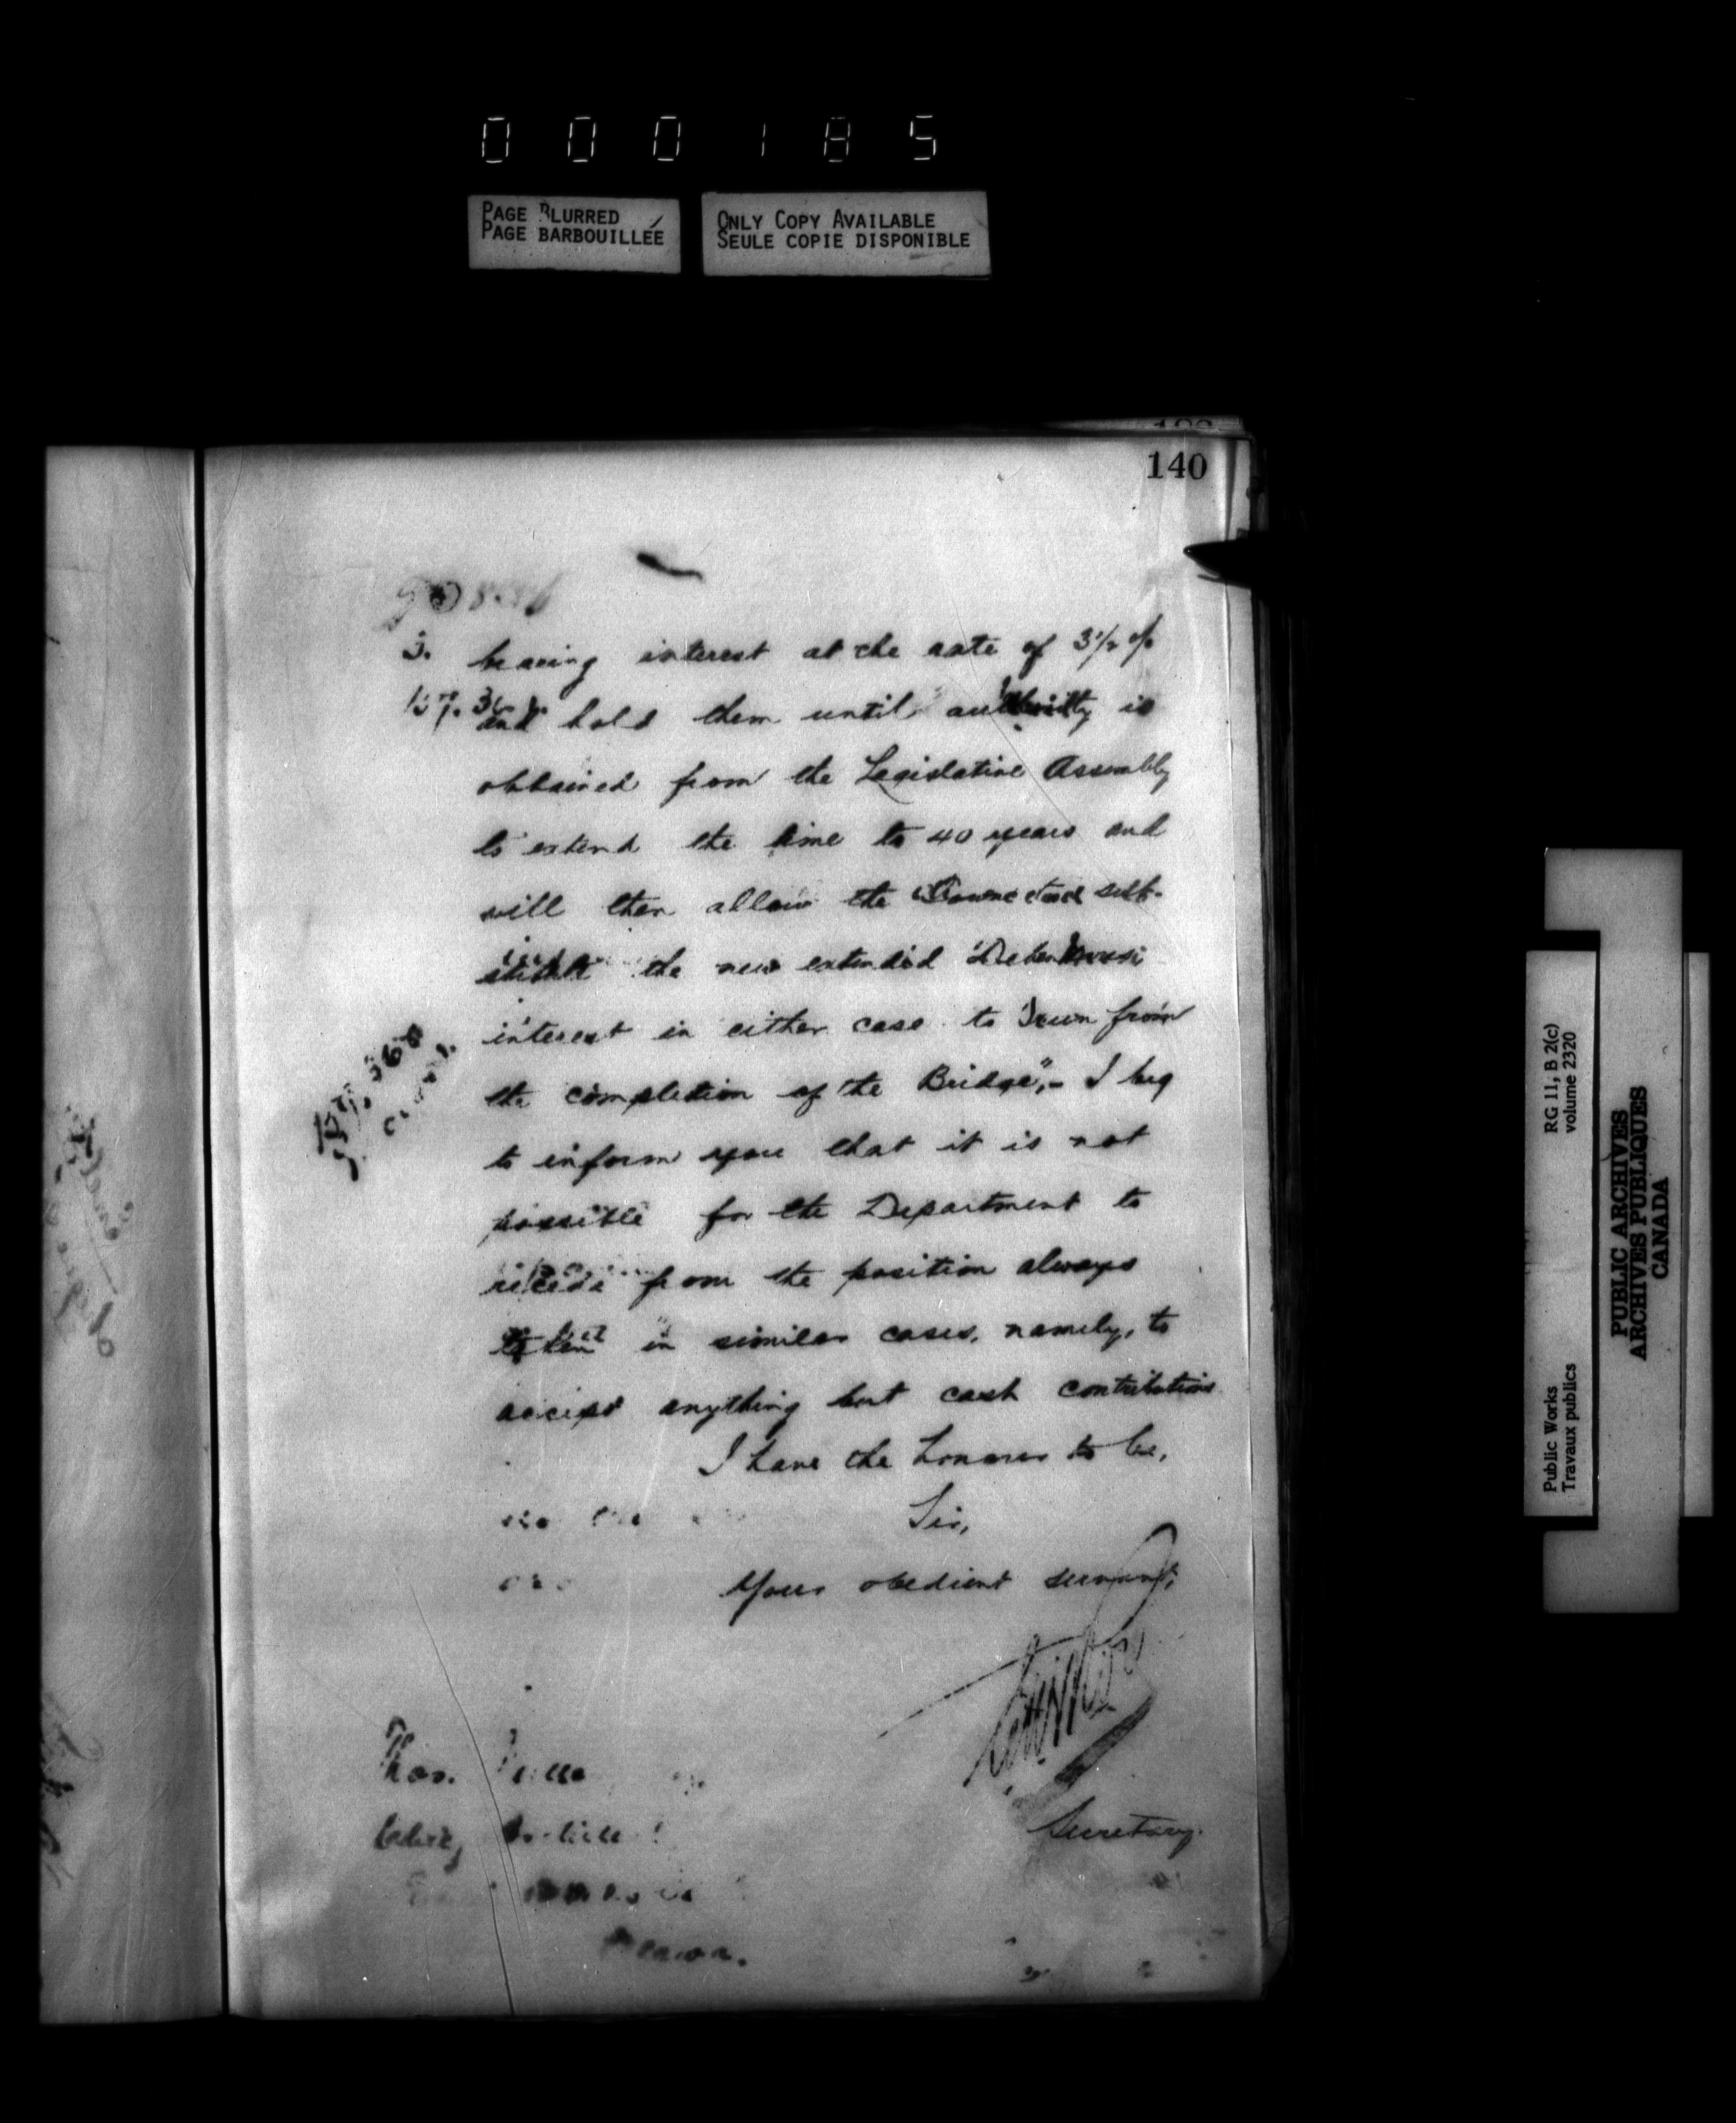 000185
PAGE BLURRED
PAGE BARBOUILLÉE
ONLY COPY AVAILABLE
SEULE COPIE DISPONIBLE
140
3. bearing interest at the rate of 3½ %
and hold them until authority is
obtained from the Legislative Assembly
to extend the time to 40 years and
will then allow the sub-
stitute the new extended Debentures
interest in either case to run from
the completion of the Bridge", - I beg
to inform you that it is not
possible for the Department to
recede from the position always
taken in similar cases, namely, to
accept anything but cash contributions
I have the honour to be,
Sir,
Your obedient servant,
Thos.
Secretary.
RG 11, B 2(c)
volume 2320
Public Works
Travaux publics
PUBLIC ARCHIVES
ARCHIVES PUBLIQUES
CANADA